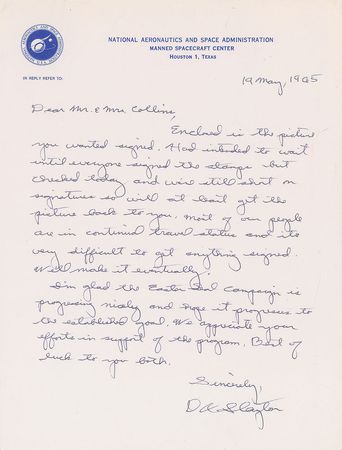 NATIONAL AERONAUTICS AND SPACE ADMINISTRATION
MANNED SPACECRAFT CENTER
HOUSTON 1, TEXAS
IN REPLY REFER TO:
19 May, 1965
Dear Mr. & Mrs Collins,
Enclosed is the picture
you wanted signed. Had intended to wait
until everyone signed the stamps but
checked today and were still short on
signatures so will at least get the
picture back to you. Most of our people
are in continual travel status and its
very difficult to get anything signed.
We'll make it eventually.
I'm glad the Easter Seal Campaign is
progressing nicely and hope it progresses to
the established goal. We appreciate your
efforts in support of the program. Best of
luck to you both.
Sincerely,
D K Slayton